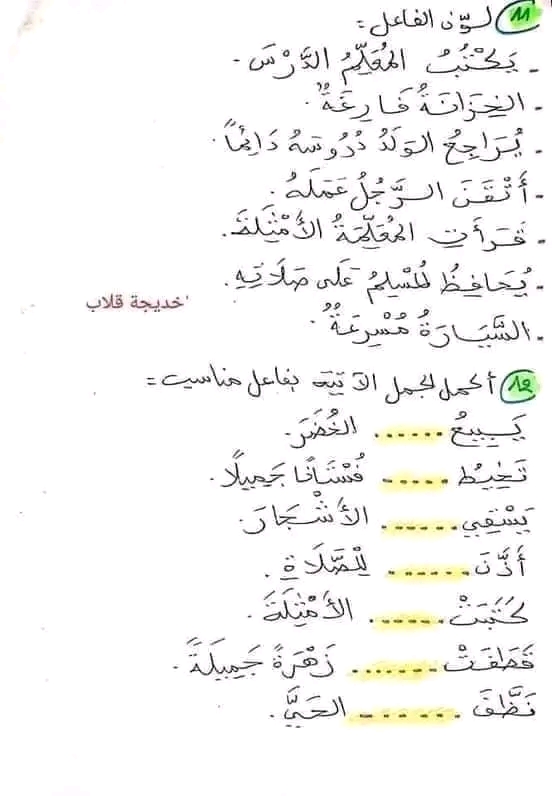 11 لوّن الفاعل:
- يَكْتُبُ المُعَلِّمُ الدَّرْسَ.
- الخِزَانَةُ فَارِغَةٌ.
- يُرَاجِعُ الوَلَدُ دُرُوسَهُ دَائِمًا.
- أَتْقَنَ الرَّجُلُ عَمَلَهُ.
- قَرَأَتِ المُعَلِّمَةُ الأَمْثِلَةَ.
- يُحَافِظُ المُسْلِمُ عَلَى صَلَاتِهِ.
خديجة قلاب
- السَّيَارَةُ مُسْرِعَةٌ.
12 أكمل الجمل الآتية بفاعل مناسب:
يَبِيعُ ...... الخُضَرَ.
تَخِيطُ ...... فُسْتَانًا جَمِيلًا.
يَسْقِي ...... الأَشْجَارَ.
أَذَّنَ ....... لِلصَّلَاةِ.
كَتَبَتْ ...... الأَمْثِلَةَ.
قَطَفَتْ ....... زَهْرَةً جَمِيلَةً.
نَظَّفَ ....... الحَيَّ.